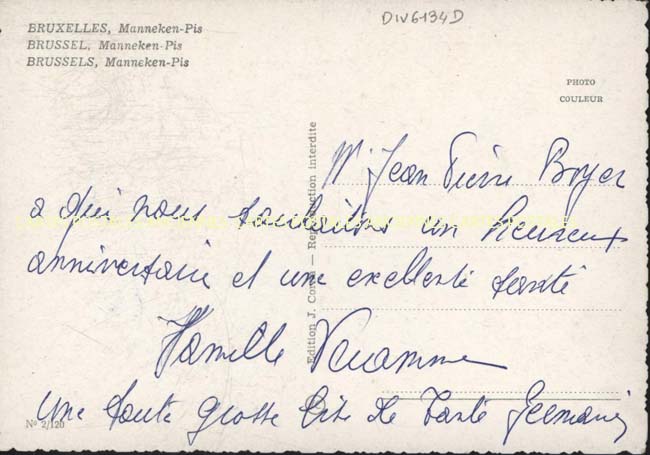 DIV6134D
BRUXELLES, Manneken-Pis
BRUSSEL, Manneken-Pis
BRUSSELS, Manneken-Pis
PHOTO
COULEUR
Edition J. — Reproduction interdite
Mr Jean Pierre Boyer
a qui nous souhaitons un heureux
anniversaire et une excellente santé
Famille
une toute grosse bise de Tante Germaine
Nº 2/120